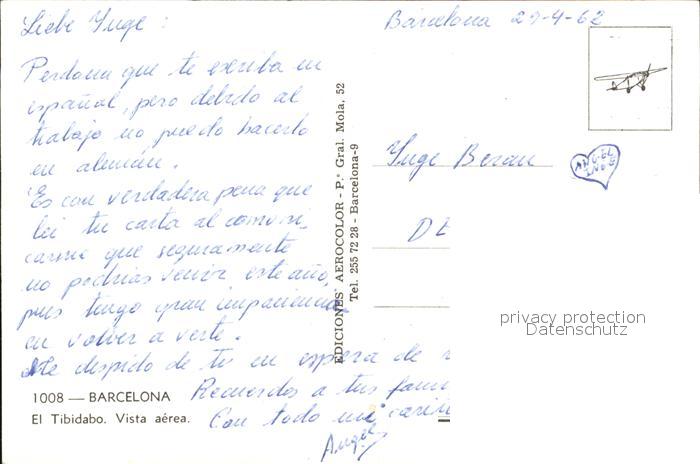 Barcelona 29-4-62
Liebe Inge :
Perdona que te escriba en
español, pero debido al
trabajo no puedo hacerlo
en alemán.
Es con verdadera pena que
leí tu carta al comuni-
carme que seguramente
no podrías venir este año,
pues tengo gran impaciencia
en volver a verte.
Me despido de ti en espera de
Recuerdos a tus fami
Con todo mi cariñ
Angel
1008 — BARCELONA
El Tibidabo. Vista aérea.
EDICIONES AEROCOLOR - P.º Gral. Mola, 52
Tel. 255 72 28 - Barcelona-9
Inge Beran
DE
privacy protection
Datenschutz